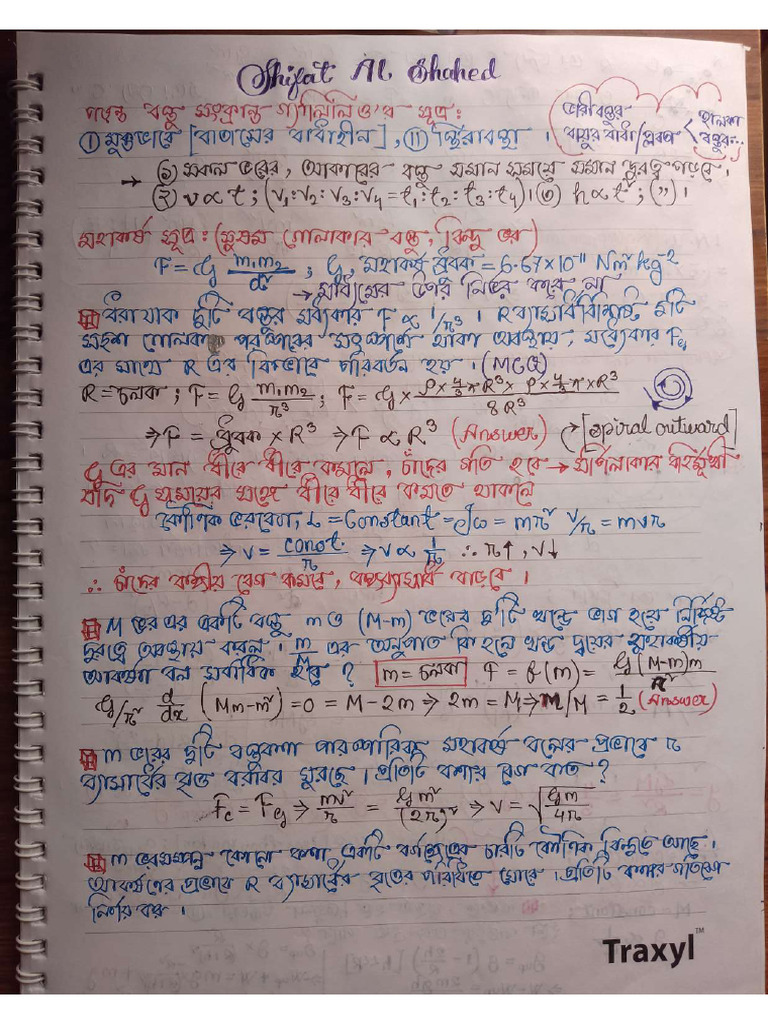 Shifat Al Shahed
পড়ন্ত বস্তু সংক্রান্ত গ্যালিলিও'র সূত্র:
ভারী বস্তুর বায়ুর বাধা/প্লবতা < হালকা বস্তুর...
(i) মুক্তভাবে [বাতাসের বাধাহীন], (ii) স্থিরাবস্থা।
→ (১) সকল ভরের, আকারের বস্তু সমান সময়ে সমান দূরত্ব পড়বে।
(২) v∝t; (v₁:v₂:v₃:v₄ = t₁:t₂:t₃:t₄)। (৩) h∝t²; (")।
মহাকর্ষ সূত্র: (সুষম গোলাকার বস্তু, বিন্দু ভর)
F = G m₁m₂/d² ; G, মহাকর্ষ ধ্রুবক = 6.67×10⁻¹¹ Nm²kg⁻²
→ মাধ্যমের উপর নির্ভর করে না
ধরা যাক দুটি বস্তুর মধ্যকার F ∝ 1/r³। R ব্যাসার্ধবিশিষ্ট দুটি
সদৃশ গোলক পরস্পরের সংস্পর্শে থাকা অবস্থায়, মধ্যেকার F_G
এর সাথে R এর কিভাবে পরিবর্তন হয়। (MCQ)
R = চলক ; F = G m₁m₂/r³ ; F = G × (ρ×4/3 π R³ × ρ×4/3 π×R³)/8R³
⇒ F = ধ্রুবক × R³ ⇒ F ∝ R³ (Answer) [Spiral outward]
G এর মান ধীরে ধীরে কমলে, চাঁদের গতি হবে → সর্পিলাকার বহির্মুখী
যদি G সময়ের সঙ্গে ধীরে ধীরে কমতে থাকলে
কৌণিক ভরবেগ, L = Constant = Iω = mr² v/r = mvr
⇒ v = const./r ⇒ v ∝ 1/r ∴ r↑, v↓
∴ চাঁদের কক্ষীয় বেগ কমবে, কক্ষব্যাসার্ধ বাড়বে।
M ভর এর একটি বস্তু m ও (M-m) ভরের দু'টি খন্ডে ভাগ হয়ে নির্দিষ্ট
দূরত্বে অবস্থান করল। m/M এর অনুপাত কি হলে খন্ড দ্বয়ের মহাকর্ষীয়
আকর্ষণ বল সর্বাধিক হবে? m = চলক F = f(m) = G(M-m)m/R²
G/r² d/dx (Mm-m²) = 0 = M-2m ⇒ 2m = M ⇒ m/M = 1/2 (Answer)
m ভরের দুটি বস্তুকণা পারস্পারিক মহাকর্ষ বলের প্রভাবে r
ব্যাসার্ধের বৃত্ত বরাবর ঘুরছে। প্রতিটি কণার বেগ কত?
F_c = F_G ⇒ mv²/r = Gm²/(2r)² ⇒ v = √(Gm/4r)
m ভরসম্পন্ন কোনো কণা একটি বর্গক্ষেত্রের চারটি কৌণিক বিন্দুতে আছে।
আকর্ষণের প্রভাবে R ব্যাসার্ধের বৃত্তের পরিধিতে ঘোরে। প্রতিটি কণার গতিবেগ
নির্ণয় কর।
Traxyl™